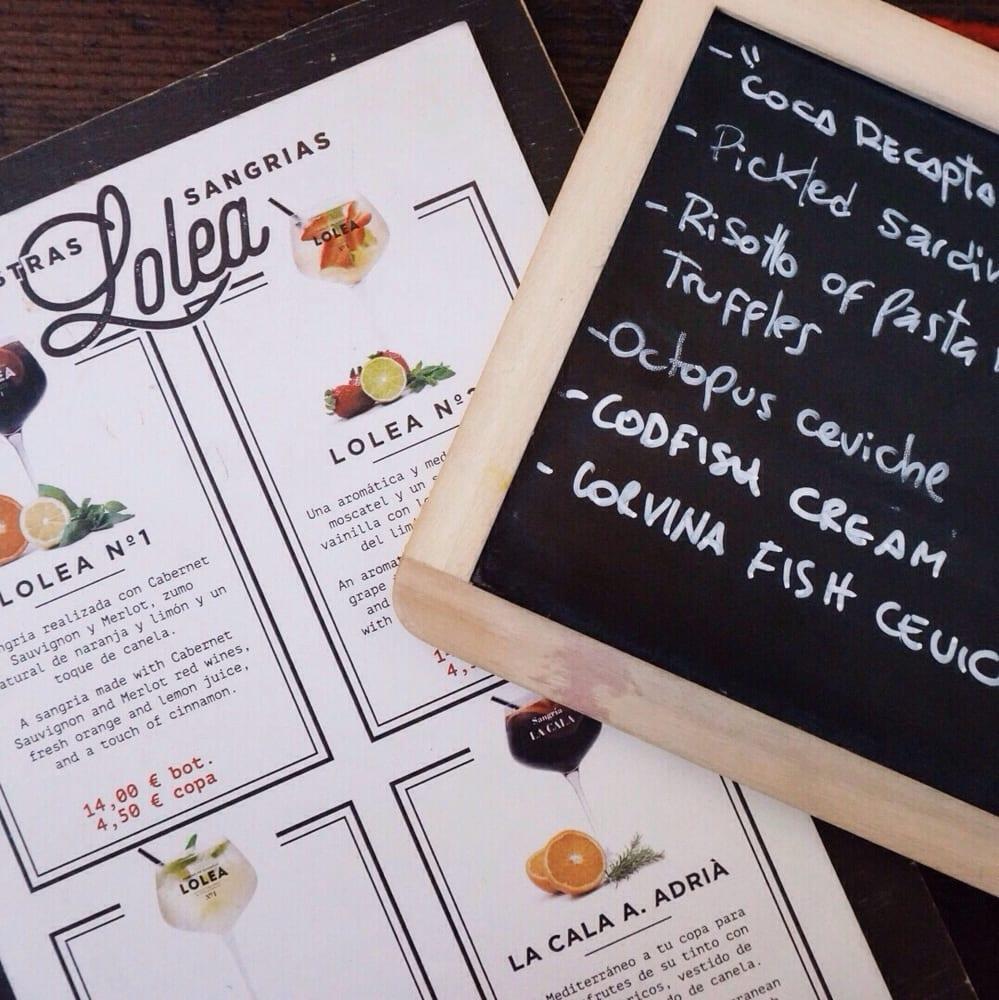 SANGRIAS
Lolea
LOLEA
LOLEA Nº1
Sauvignon y Merlot, zumo
de naranja y limón y un
toque de canela.
A sangria made with Cabernet
Sauvignon and Merlot red wines,
fresh orange and lemon juice,
and a touch of cinnamon.
14,00 € bot.
4,50 € copa
LOLEA
Una aromática y
moscatel y un
vainilla con
del
An
grape
and
with
LOLEA
Nº1
Sangria
LA CALA
LA CALA A. ADRIÀ
Mediterráneo a tu copa para
de su tinto con
vestido de
de canela.
- "COCA RECAPTO
- Pickled
- Risotto of Pasta
Truffles
- Octopus ceviche
- CODFISH CREAM
- CORVINA FISH